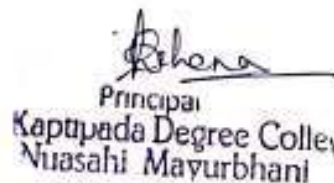 Principal
Kaptipada Degree Colle
Nuasahi Mayurbhanj